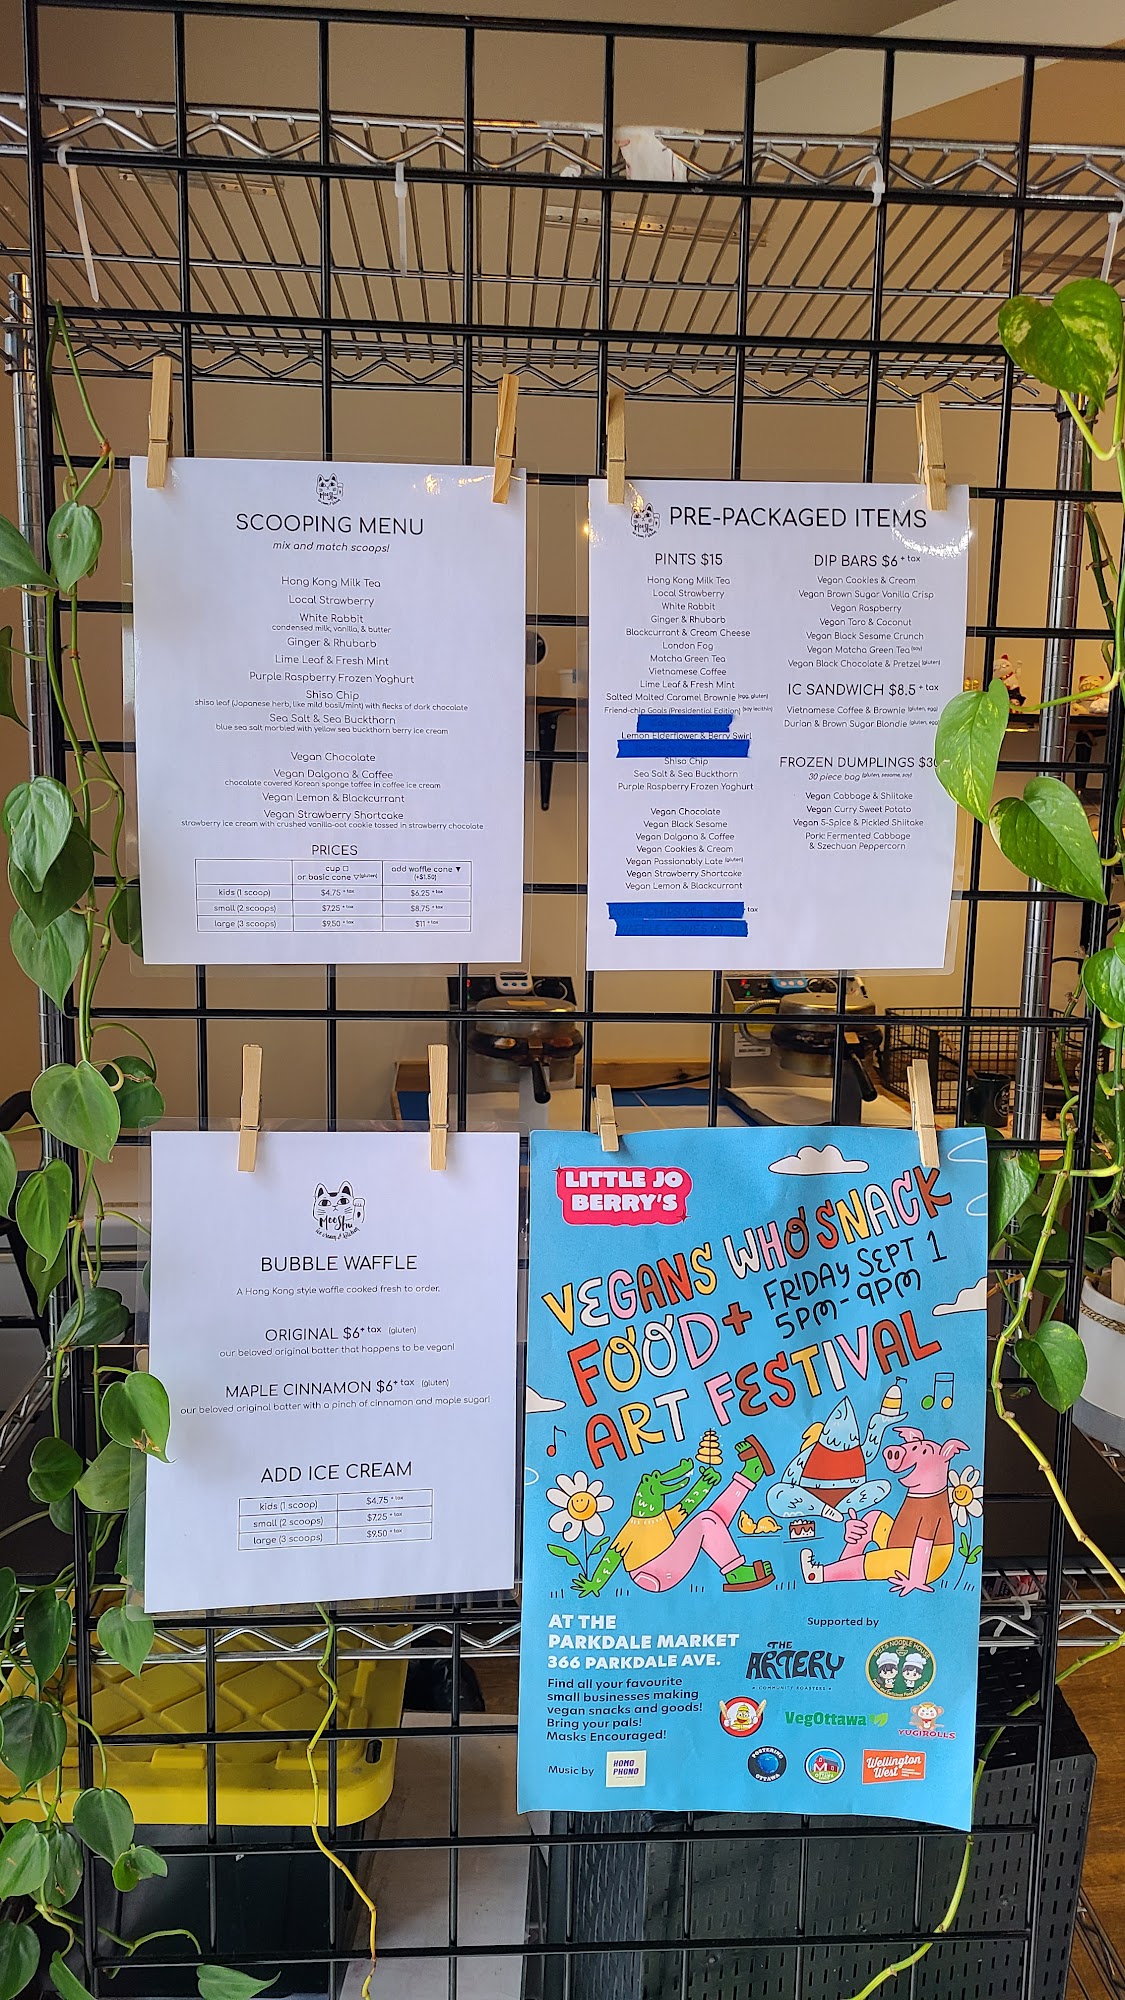 MeeShu
SCOOPING MENU
mix and match scoops!
Hong Kong Milk Tea
Local Strawberry
White Rabbit
condensed milk, vanilla, & butter
Ginger & Rhubarb
Lime Leaf & Fresh Mint
Purple Raspberry Frozen Yoghurt
Shiso Chip
shiso leaf (Japanese herb, like mild basil/mint) with flecks of dark chocolate
Sea Salt & Sea Buckthorn
blue sea salt marbled with yellow sea buckthorn berry ice cream
Vegan Chocolate
Vegan Dalgona & Coffee
chocolate covered Korean sponge toffee in coffee ice cream
Vegan Lemon & Blackcurrant
Vegan Strawberry Shortcake
strawberry ice cream with crushed vanilla-oat cookie tossed in strawberry chocolate
PRICES
cup add waffle cone
or basic cone (gluten) (+$1.50)
kids (1 scoop) $4.75 + tax $6.25 + tax
small (2 scoops) $7.25 + tax $8.75 + tax
large (3 scoops) $9.50 + tax $11 + tax
MeeShu
PRE-PACKAGED ITEMS
PINTS $15
Hong Kong Milk Tea
Local Strawberry
White Rabbit
Ginger & Rhubarb
Blackcurrant & Cream Cheese
London Fog
Matcha Green Tea
Vietnamese Coffee
Lime Leaf & Fresh Mint
Salted Malted Caramel Brownie (egg, gluten)
Friend-chip Goals (Presidential Edition) (soy lecithin)
Lemon Elderflower & Berry Swirl
Shiso Chip
Sea Salt & Sea Buckthorn
Purple Raspberry Frozen Yoghurt
Vegan Chocolate
Vegan Black Sesame
Vegan Dalgona & Coffee
Vegan Cookies & Cream
Vegan Passionably Late (gluten)
Vegan Strawberry Shortcake
Vegan Lemon & Blackcurrant
tax
DIP BARS $6 + tax
Vegan Cookies & Cream
Vegan Brown Sugar Vanilla Crisp
Vegan Raspberry
Vegan Taro & Coconut
Vegan Black Sesame Crunch
Vegan Matcha Green Tea (soy)
Vegan Black Chocolate & Pretzel (gluten)
IC SANDWICH $8.5 + tax
Vietnamese Coffee & Brownie (gluten, egg)
Durian & Brown Sugar Blondie (gluten, egg)
FROZEN DUMPLINGS $30
30 piece bag (gluten, sesame, soy)
Vegan Cabbage & Shiitake
Vegan Curry Sweet Potato
Vegan 5-Spice & Pickled Shiitake
Pork: Fermented Cabbage
& Szechuan Peppercorn
MeeShu
ice cream & kitchen
BUBBLE WAFFLE
A Hong Kong style waffle cooked fresh to order.
ORIGINAL $6 + tax (gluten)
our beloved original batter that happens to be vegan!
MAPLE CINNAMON $6 + tax (gluten)
our beloved original batter with a pinch of cinnamon and maple sugar!
ADD ICE CREAM
kids (1 scoop) $4.75 + tax
small (2 scoops) $7.25 + tax
large (3 scoops) $9.50 + tax
LITTLE JO
BERRY'S
VEGANS WHO SNACK
FOOD +
ART FESTIVAL
FRIDAY SEPT 1
5PM-9PM
AT THE
PARKDALE MARKET
366 PARKDALE AVE.
Find all your favourite
small businesses making
vegan snacks and goods!
Bring your pals!
Masks Encouraged!
Music by
HOMO
PHONO
Supported by
THE
ARTERY
COMMUNITY ROASTERS
VegOttawa
YUGIROLLS
FOSTERING
OTTAWA
Wellington
West